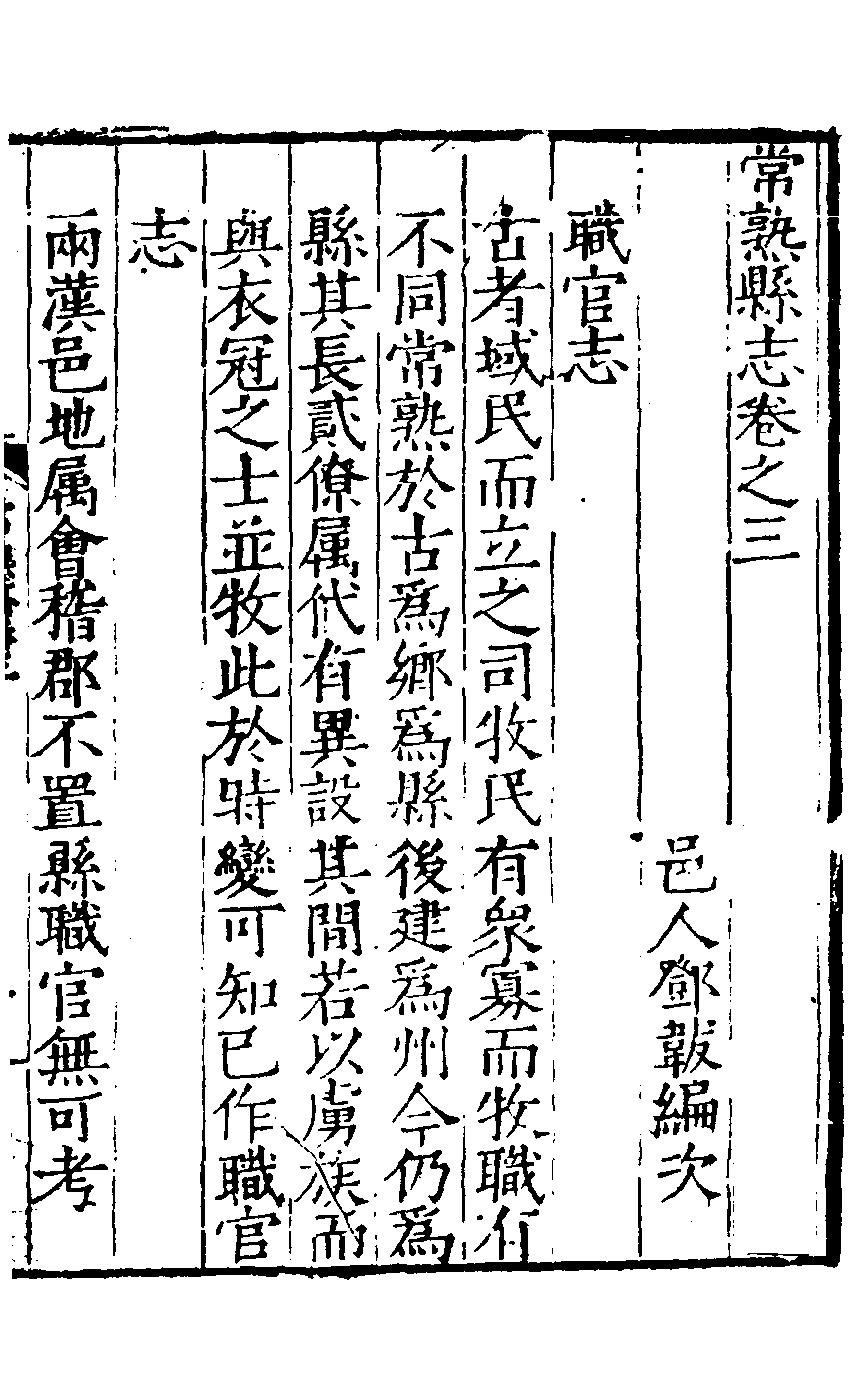 常熟縣志卷之三
邑人鄧韍編次
職官志
古者域民而立之司牧民有衆寡而牧職有
不同常熟於古爲鄉爲縣後建爲州今仍爲
縣其長貳僚属代有異設其間若以虜族而
與衣冠之士並牧此於時變可知已作職官
志
兩漢邑地属會稽郡不置縣職官無可考